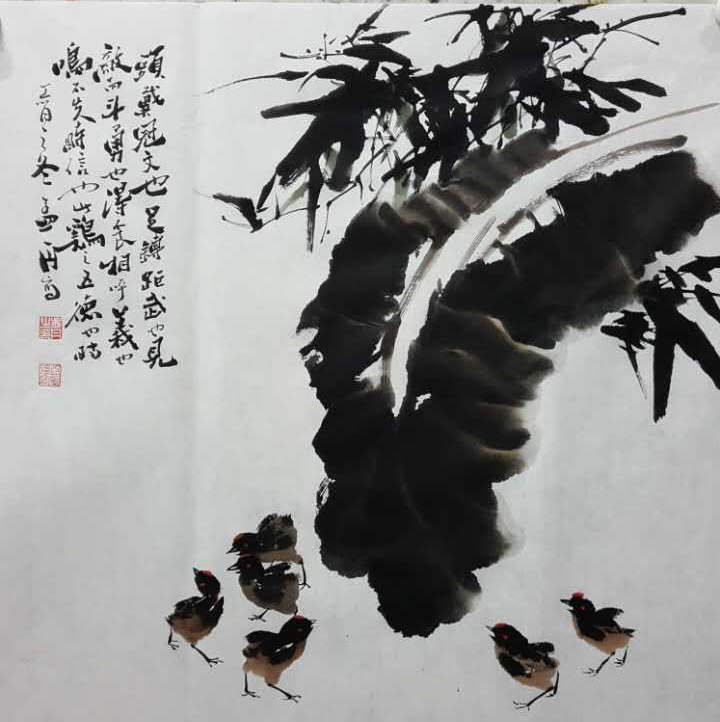 頭戴冠文也足鎛距武也見
敵而斗勇也得食相呼義也
鳴不失時信也此鷄之五德也時
丁酉之冬孟寫